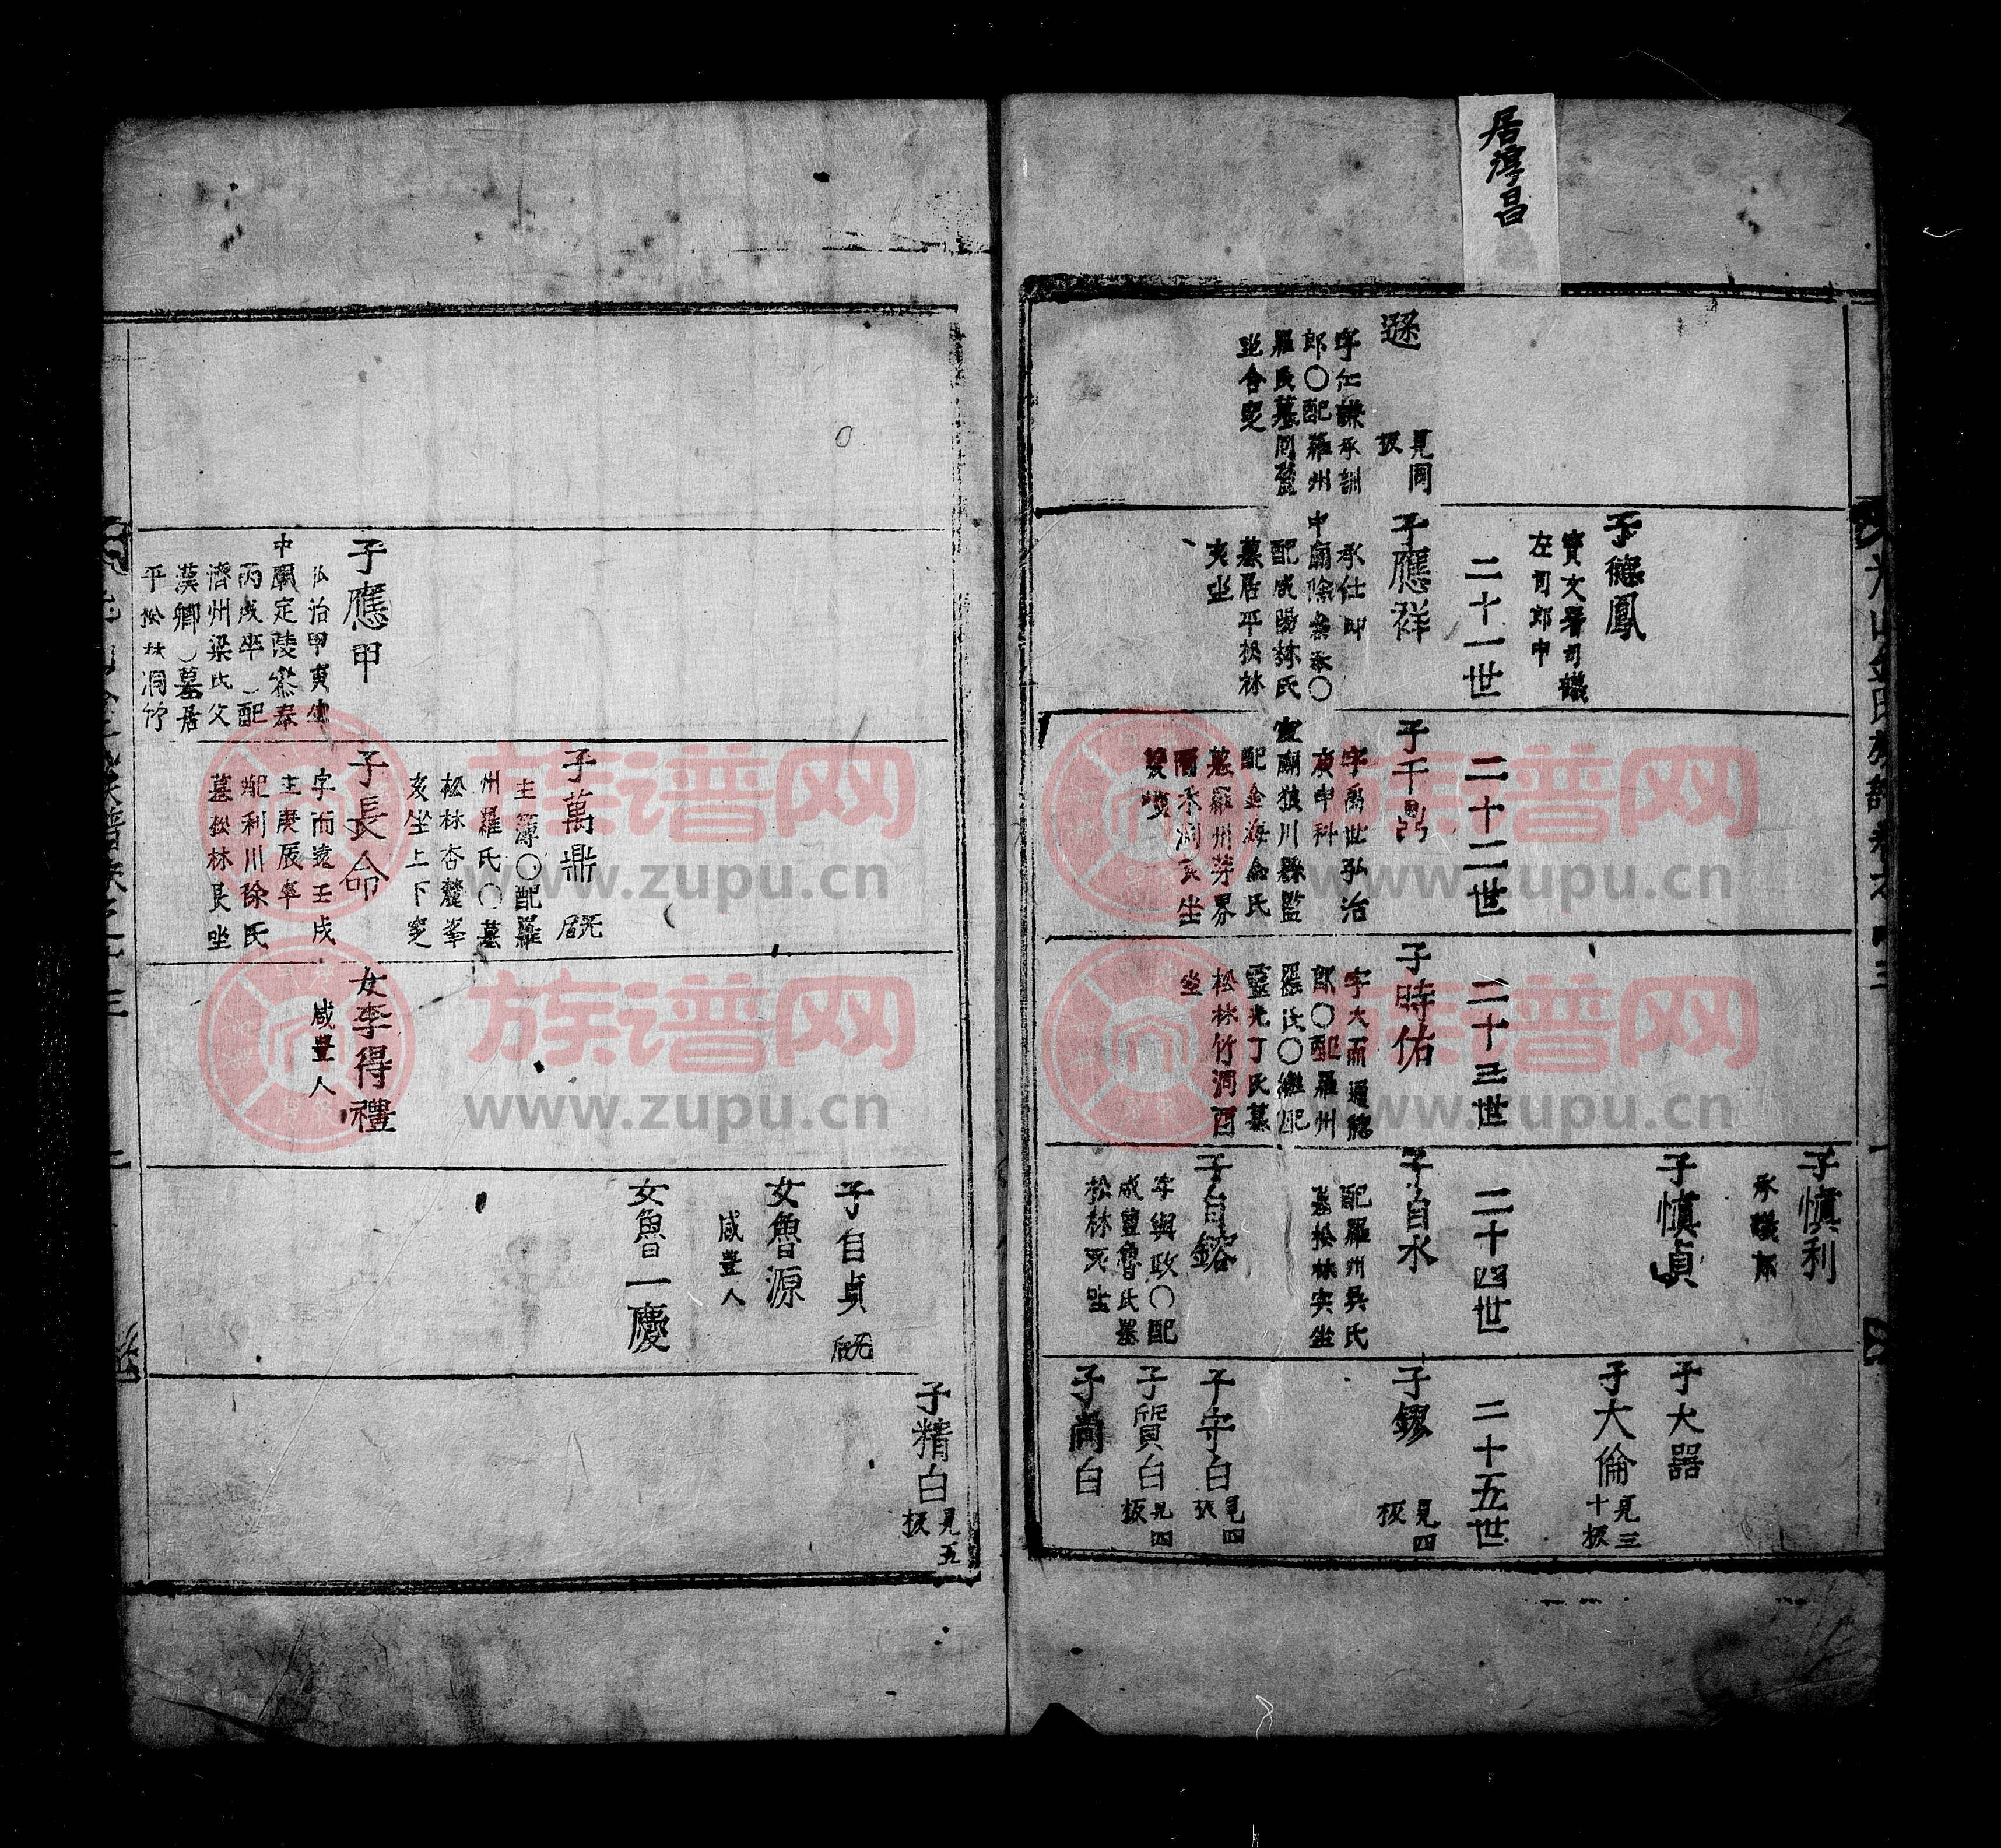 居淳昌
遜
見同
板
字仁謙承訓
郎○配羅州
羅氏墓同麓
坐合窆
子德鳳
寶文署司儀
左司郎中
二十一世
子應祥
承仕郎
中廟除參奉○
墓居平松林
亥坐
二十二世
子千鼎
字禹世弘治
庚申科
宣廟狼川縣監
配金海金氏
墓羅州芳界
二十三世
子時佑
字大而通德
郎○配羅州
羅氏○繼配
靈光丁氏墓
松林竹洞酉
坐
子愼利
承議郎
子愼貞
二十四世
子自水
配羅州吳氏
墓松林実坐
子自鎔
字興政○配
咸豐魯氏墓
松林亥坐
子大器
子大倫
見三
十板
二十五世
子鏐
見四
板
子守白
見四
張
子質白
見四
板
子尚白
子應甲
弘治甲寅生
中廟定陵參奉
丙戌卒 配
濟州梁氏父
漢卿 墓居
平松林洞竹
子萬鼎 无后
主簿○配羅
州羅氏○墓
松林杏麓峯
亥坐上下窆
子長命
字而遠壬戌
生庚辰卒
配利川徐氏
墓松林艮坐
女李得禮
咸豐人
子自貞 无后
女魯源
咸豐人
女魯一慶
子精白
見五
板
族谱网
www.zupu.cn
族谱网
www.zupu.cn
族谱网
www.zupu.cn
族谱网
www.zupu.cn